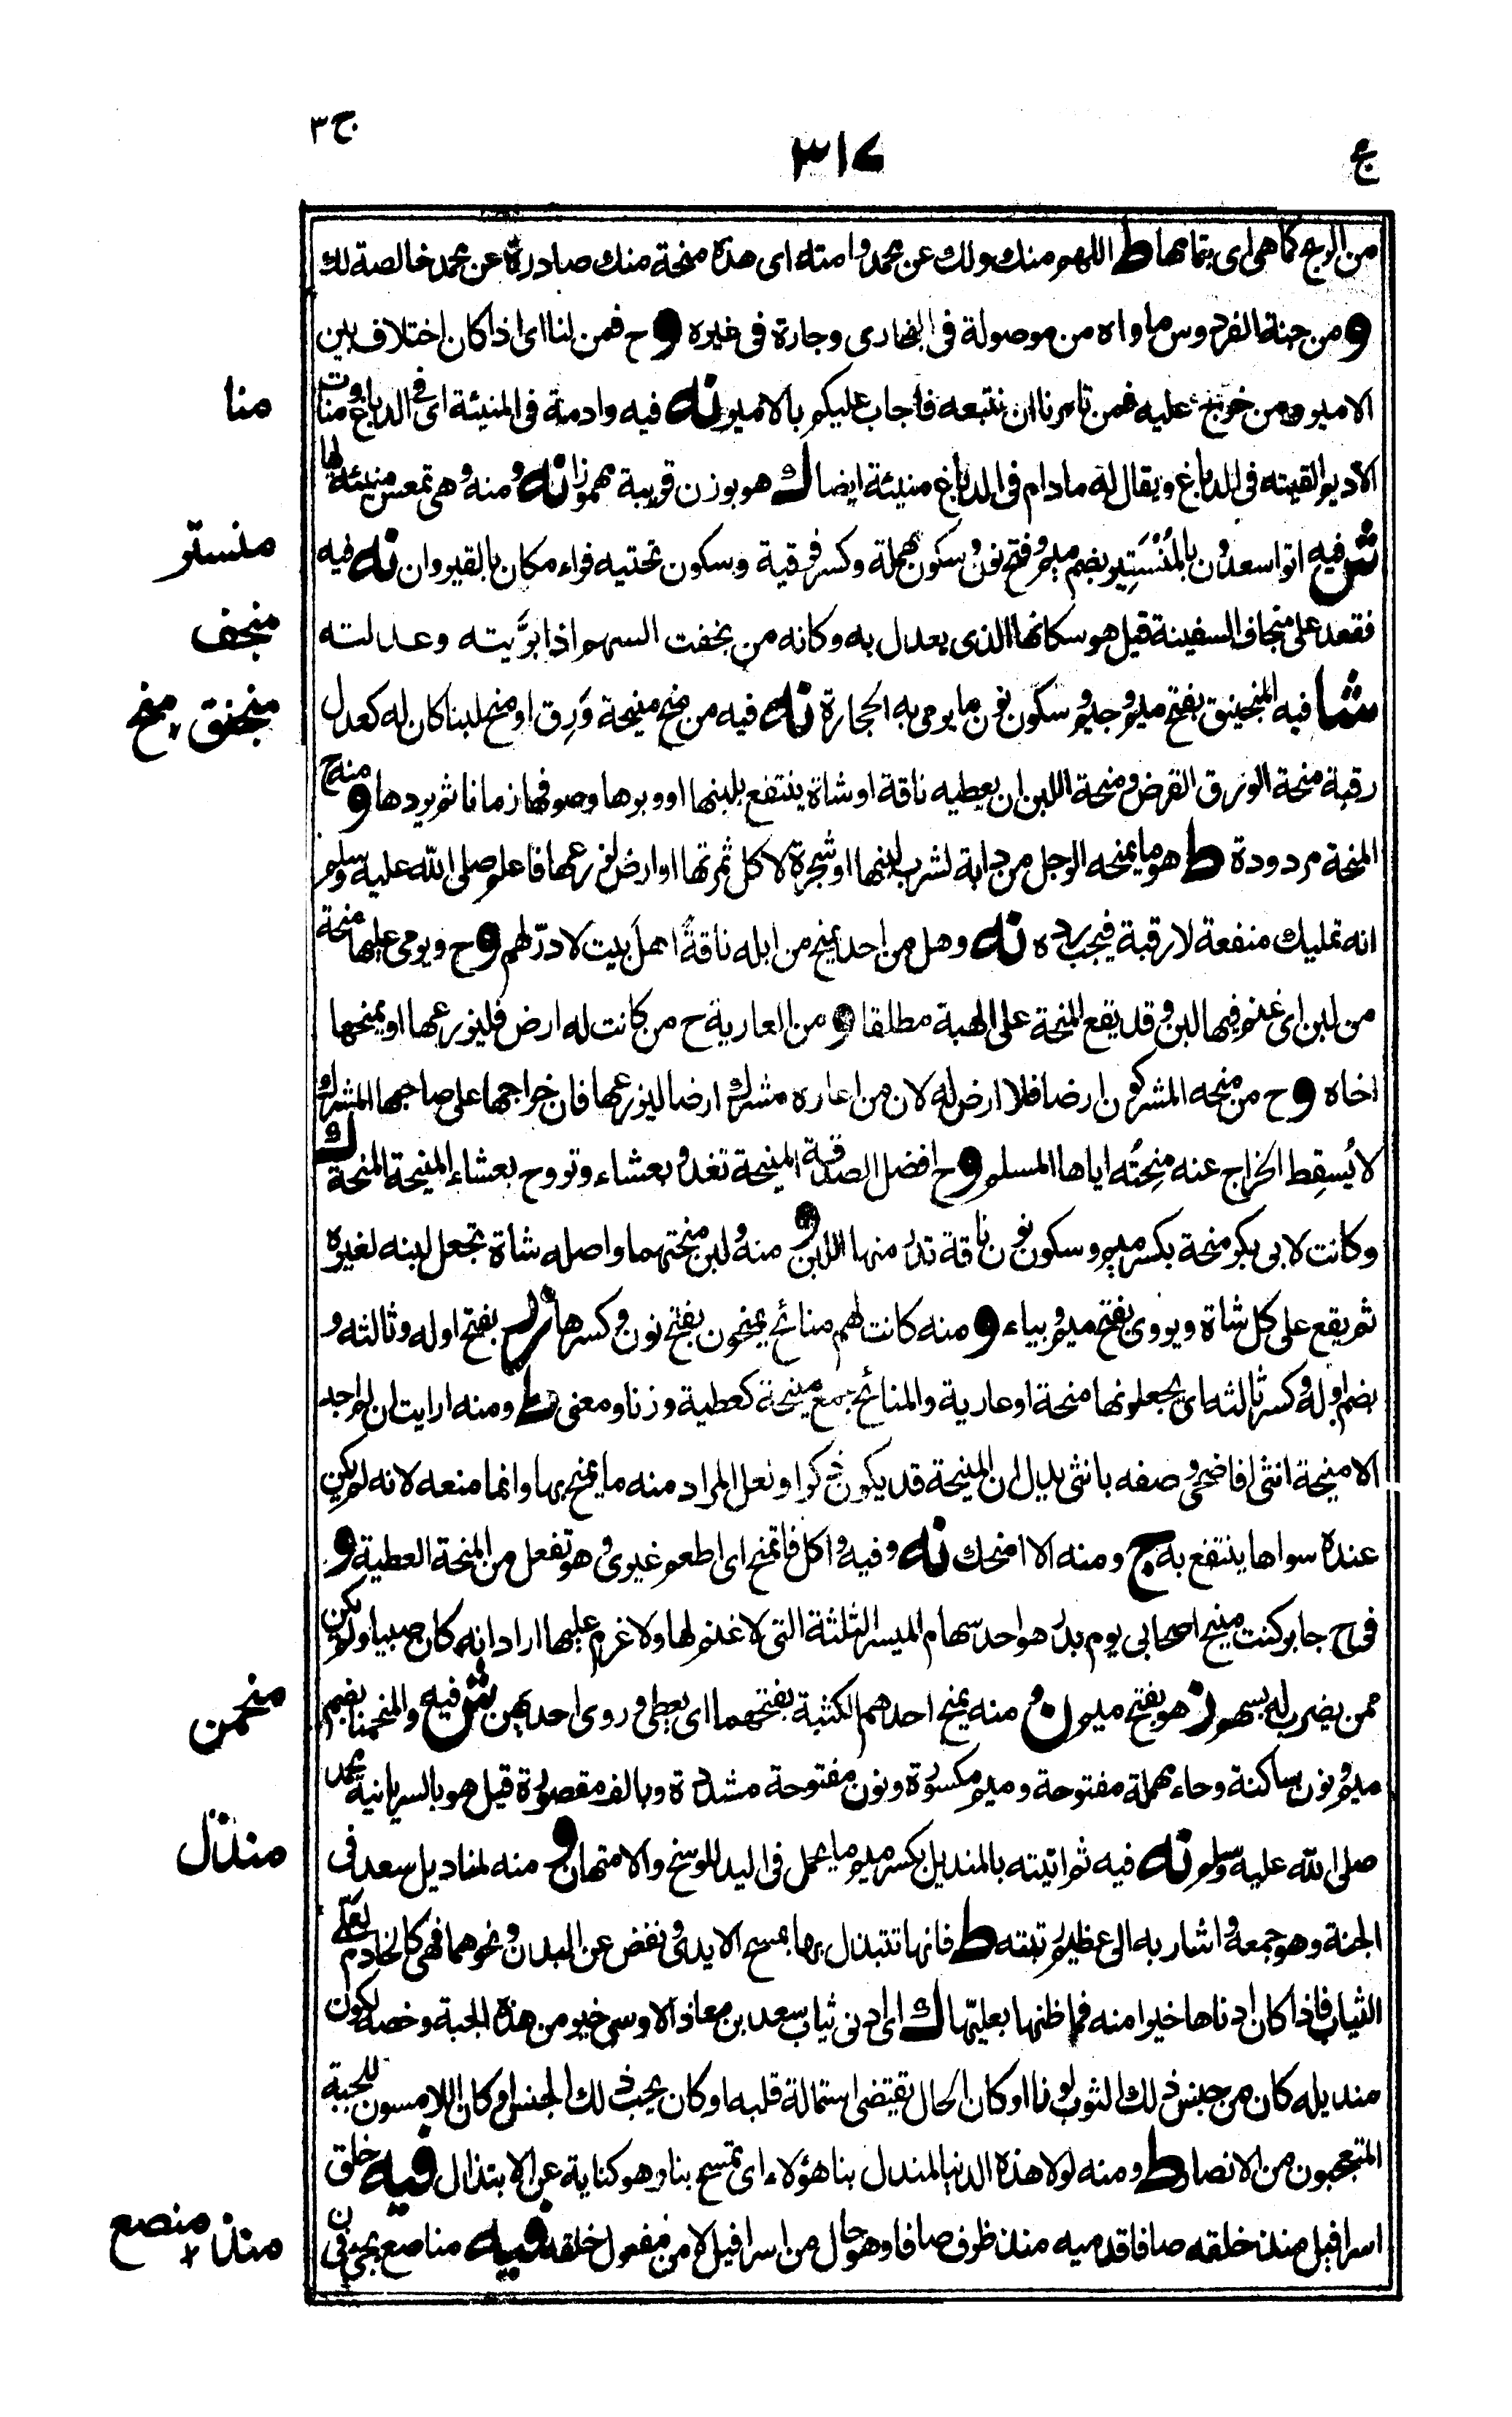 ج٣
٣١٧
ع
من الوجع كما هى اى بتمامها ط اللهم منك ولك عن محمد وامته اى هذه منحة منك صادرة عن محمد خالصة لك
و من جنة الفردوس ماواه من موصولة فى البخارى وجارة فى غيره و ح فمن لنا اى اذا كان اختلاف بين
الامير ومن خرج عليه فمن تامرنا ان نتبعه فاجاب عليكم بالامير نه فيه وادمة فى المنيئة اى فى الدباغ ومنات
منا
الاديم القيته فى الدباغ ويقال له مادام فى الدباغ منيئة ايضا ك هو بوزن قريبة همزا نه و منه وهى تمعس منيئة لها
ش فيه اتوا سعدون بالمُنَسْتِير بضم ميم وفتح نون وسكون مهملة وكسر فوقية وسكون تحتيه فراء مكان بالقيروان نه فيه
منستر
فقعد على منجاف السفينة قيل هو سكانها الذى يعدل به وكانه من نجفت السهم اذا برّيته وعدلته
منجف
شا فيه المنجنيق بفتح ميم وجيم وسكون نون ما يرمى به الحجارة نه فيه من منح منيحة وَرِق او منح لبنا كان له كعدل
منجنق، منح
رقبة منحة الورق القرض ومنحة اللبن ان يعطيه ناقة او شاة ينتفع بلبنها او وبرها وصوفها زمانا ثم يردها و منه ح
المنحة مردودة ط هو ما يمنحه الرجل من دابة لشرب لبنها او شجرة لاكل ثمرتها او ارض لزرعها فاعلم صلى الله عليه وسلم
انه تمليك منفعة لا رقبة فيجب رده نه وهل من احد يمنح من ابله ناقةً اهلَ بيت لا درّ لهم و ح ويرعى عليها منحة
من لبن اى غنم فيها لبن وقد يقع المنحة على الهبة مطلقا و من العارية ح من كانت له ارض فليزرعها او يمنحها
اخاه و ح من منحه المشركون ارضا فلا ارض له لان من اعاره مشرك ارضا ليزرعها فان خراجها على صاحبها المشرك و
لا يُسقِط الخراج عنه مِنحتُه اياها المسلم و ح افضل الصدقة المنيحة تغدو بعشاء وتروح بعشاء المنيحة المنحة ك
وكانت لابى بكر منحة بكسر ميم وسكون نون ناقة تدر منها اللبن و منه ولبن منحتهما واصله شاة تجعل لبنه لغيره
ثم يقع على كل شاة ويروى بفتح ميم وبياء و منه كانت لهم منائح يمنحون بفتح نون وكسرها بفتح اوله وثالثه و
بضم اوله وكسر ثالثه اى يجعلونها منحة او عارية والمنائح جمع منيحة كعطية وزنا ومعنى ط و منه ارايت ان لم اجد
الا منيحة انثى افاضحى وصفه بانثى يدل ان المنيحة قد يكون ذكرا ولعل المراد منه ما يمنح بها وانما منعه لانه لم يكن
عنده سواها ينتفع به ج و منه الا امنحك نه وفيه واكل فاتمنح اى اطعم غيرى وهو تفعل من المنحة العطية و
فى ح جابر كنت منيح اصحابى يوم بدر هو احد سهام الميسر الثلثة التى لا غنم لها ولا غرم عليها اراد انه كان صبيا ولم يكن
ممن يضرب له بسهم ز هو بفتح ميم ن و منه يمنح احدهم الكثبة بفتحهما اى يعطى وروى احداهن ش فيه والمنحمنا بضم
منحمن
ميم ونون ساكنة وحاء مهملة مفتوحة وميم مكسورة ونون مفتوحة مشددة وبالف مقصورة قيل هو بالسريانية محمد
صلى الله عليه وسلم نه فيه ثم اتيته بالمنديل بكسر ميم ما يحمل فى اليد للوسخ والامتهان و منه لمناديل سعد فى
مندل
الجنة وهو جمعه واشار به الى عظيم رتبته ط فانها تتبذل بها بمسح الايدى ونفض عن البدن ونحوهما فهى كالخادم لعلى
الثياب فاذا كان ادناها خيرا منه فما ظنها بعليّها ك اى ادنى ثياب سعد بن معاذ الاوسى خير من هذه الجبة وخصه لكون
منديله كان من جنس ذلك الثوب لونا او كان الحال تقتضى استمالة قلبه او كان يحب ذلك الجنس او كان اللامسون للجبة
المتعجبون من الانصار ط و منه لولا هذه الدنيا لمندل بنا هؤلاء اى تمسح بنا وهو كناية عن الابتذال فيه خلق
اسرافيل منذ خلقه صافا قدميه منذ ظرف صافا وهو حال من اسرافيل لا من مفعول خلقه فيه مناصع يجئ فى ن
منذ، منصع